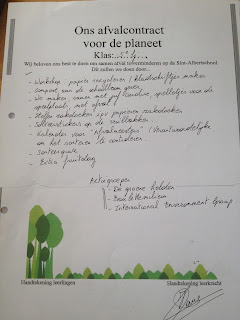 Ons afvalcontract
voor de planeet
Klas:
Wij beloven ons best te doen om samen afval te verminderen op de Sint-Albertschool
Dit zullen we doen door...
- Workshop papier recycleren / kladschriftjes maken
- compost van de schillen geven
- We maken samen met juf Karoline, spelletjes voor de
speelplaats met afval.
- Stoffen zakdoeken ipv papieren zakdoeken
- Sorteerstickers op de vuilbakken
- Kalender voor "Afvalmeesters" (Verantwoordelijke
om het sorteren te controleren.
- Sorteerquiz
- Extra fruitdag
Actiegroepen
- De groene helden
- International Environment Group
Handtekening leerlingen
Handtekening leerkracht